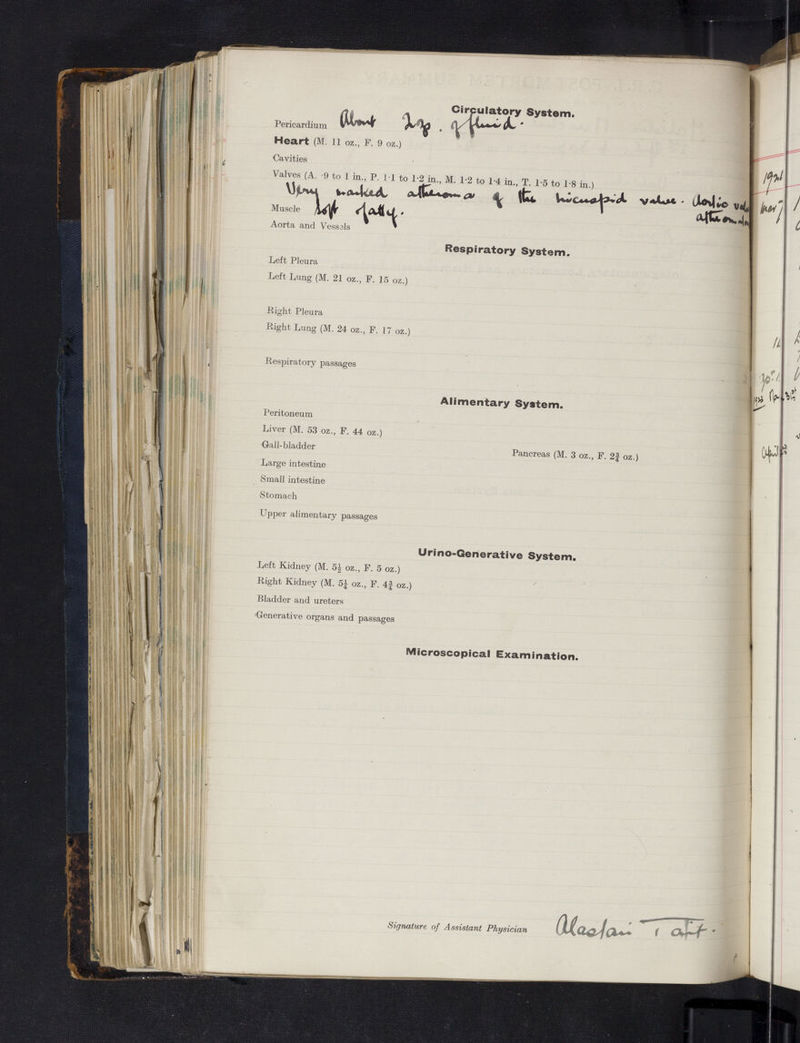 Circulatory System.
Pericardium About 2oz. of fluid.
Heart (M. 11 oz., F. 9 oz.)
Cavities
Valves (A. ·9 to 1 in., P. 1·1 to 1·2 in., M. 1·2 to 1·4 in., T. 1·5 to 1·8 in.)
Very marked atheroma of the tricuspid valve. Aortic
Muscle soft & fatty.
Aorta and Vessels
Respiratory System.
Left Pleura
Left Lung (M. 21 oz., F. 15 oz.)
Right Pleura
Right Lung (M. 24 oz., F. 17 oz.)
Respiratory passages
Alimentary System.
Peritoneum
Liver (M. 53 oz., F. 44 oz.)
Gall-bladder
Pancreas (M. 3 oz., F. 2¾ oz.)
Large intestine
Small intestine
Stomach
Upper alimentary passages
Urino-Generative System.
Left Kidney (M. 5½ oz., F. 5 oz.)
Right Kidney (M. 5¼ oz., F. 4¾ oz.)
Bladder and ureters
Generative organs and passages
Microscopical Examination.
Signature of Assistant Physician Alastair Tait.